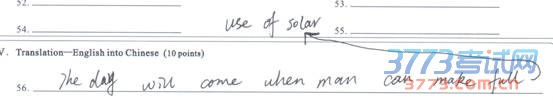 52.
53.
54.
use of solar
55.
V. Translation—English into Chinese (10 points)
3773考试网
3773.com
56. The day will come when man can make full